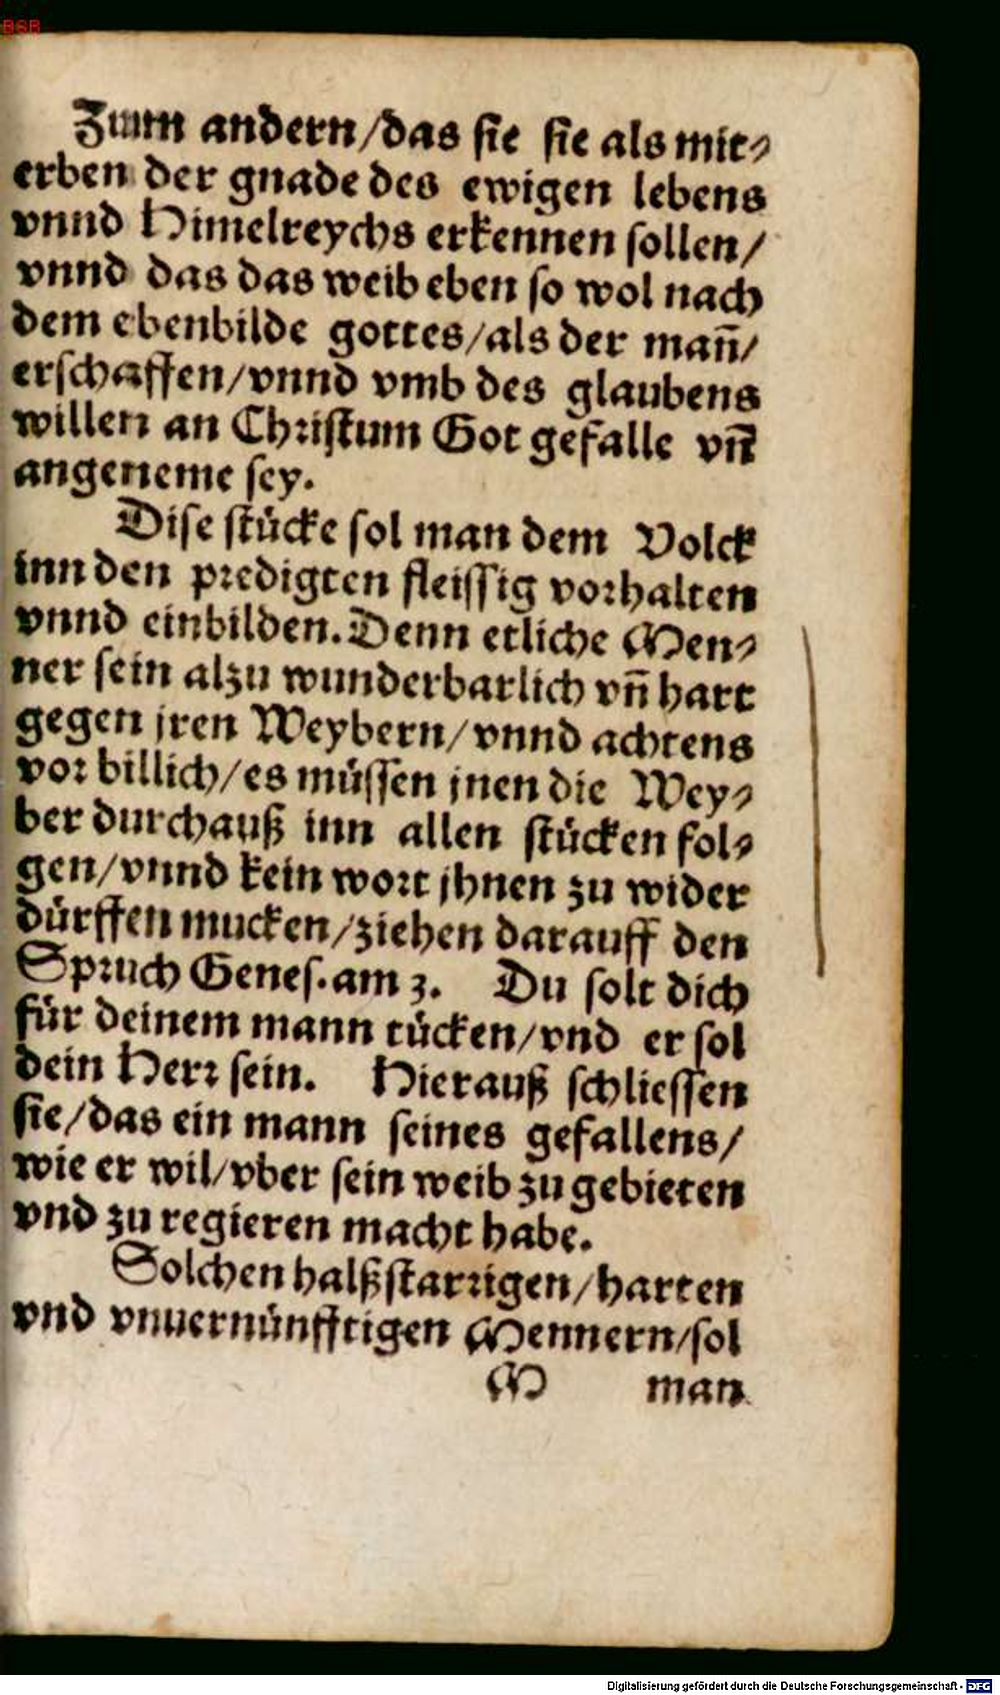 BSB
Zum andern/das sie sie als mit⸗
erben der gnade des ewigen lebens
vnnd Himelreychs erkennen sollen/
vnnd das das weib eben so wol nach
dem ebenbilde gottes/als der man̄/
erschaffen/vnnd vmb des glaubens
willen an Christum Got gefalle vn̄
angeneme sey.
Dise stücke sol man dem Volck
inn den predigten fleissig vorhalten
vnnd einbilden. Denn etliche Men⸗
ner sein alzu wunderbarlich vn̄ hart
gegen jren Weybern/vnnd achtens
vor billich/es müssen jnen die Wey⸗
ber durchauß inn allen stücken fol⸗
gen/vnnd kein wort jhnen zu wider
dürffen mucken/ziehen darauff den
Spruch Genes. am 3. Du solt dich
für deinem mann tücken/vnd er sol
dein Herr sein. Hierauß schliessen
sie/das ein mann seines gefallens/
wie er wil/vber sein weib zu gebieten
vnd zu regieren macht habe.
Solchen halßstarrigen/harten
vnd vnuernünfftigen Mennern/sol
M man
Digitalisierung gefördert durch die Deutsche Forschungsgemeinschaft - DFG